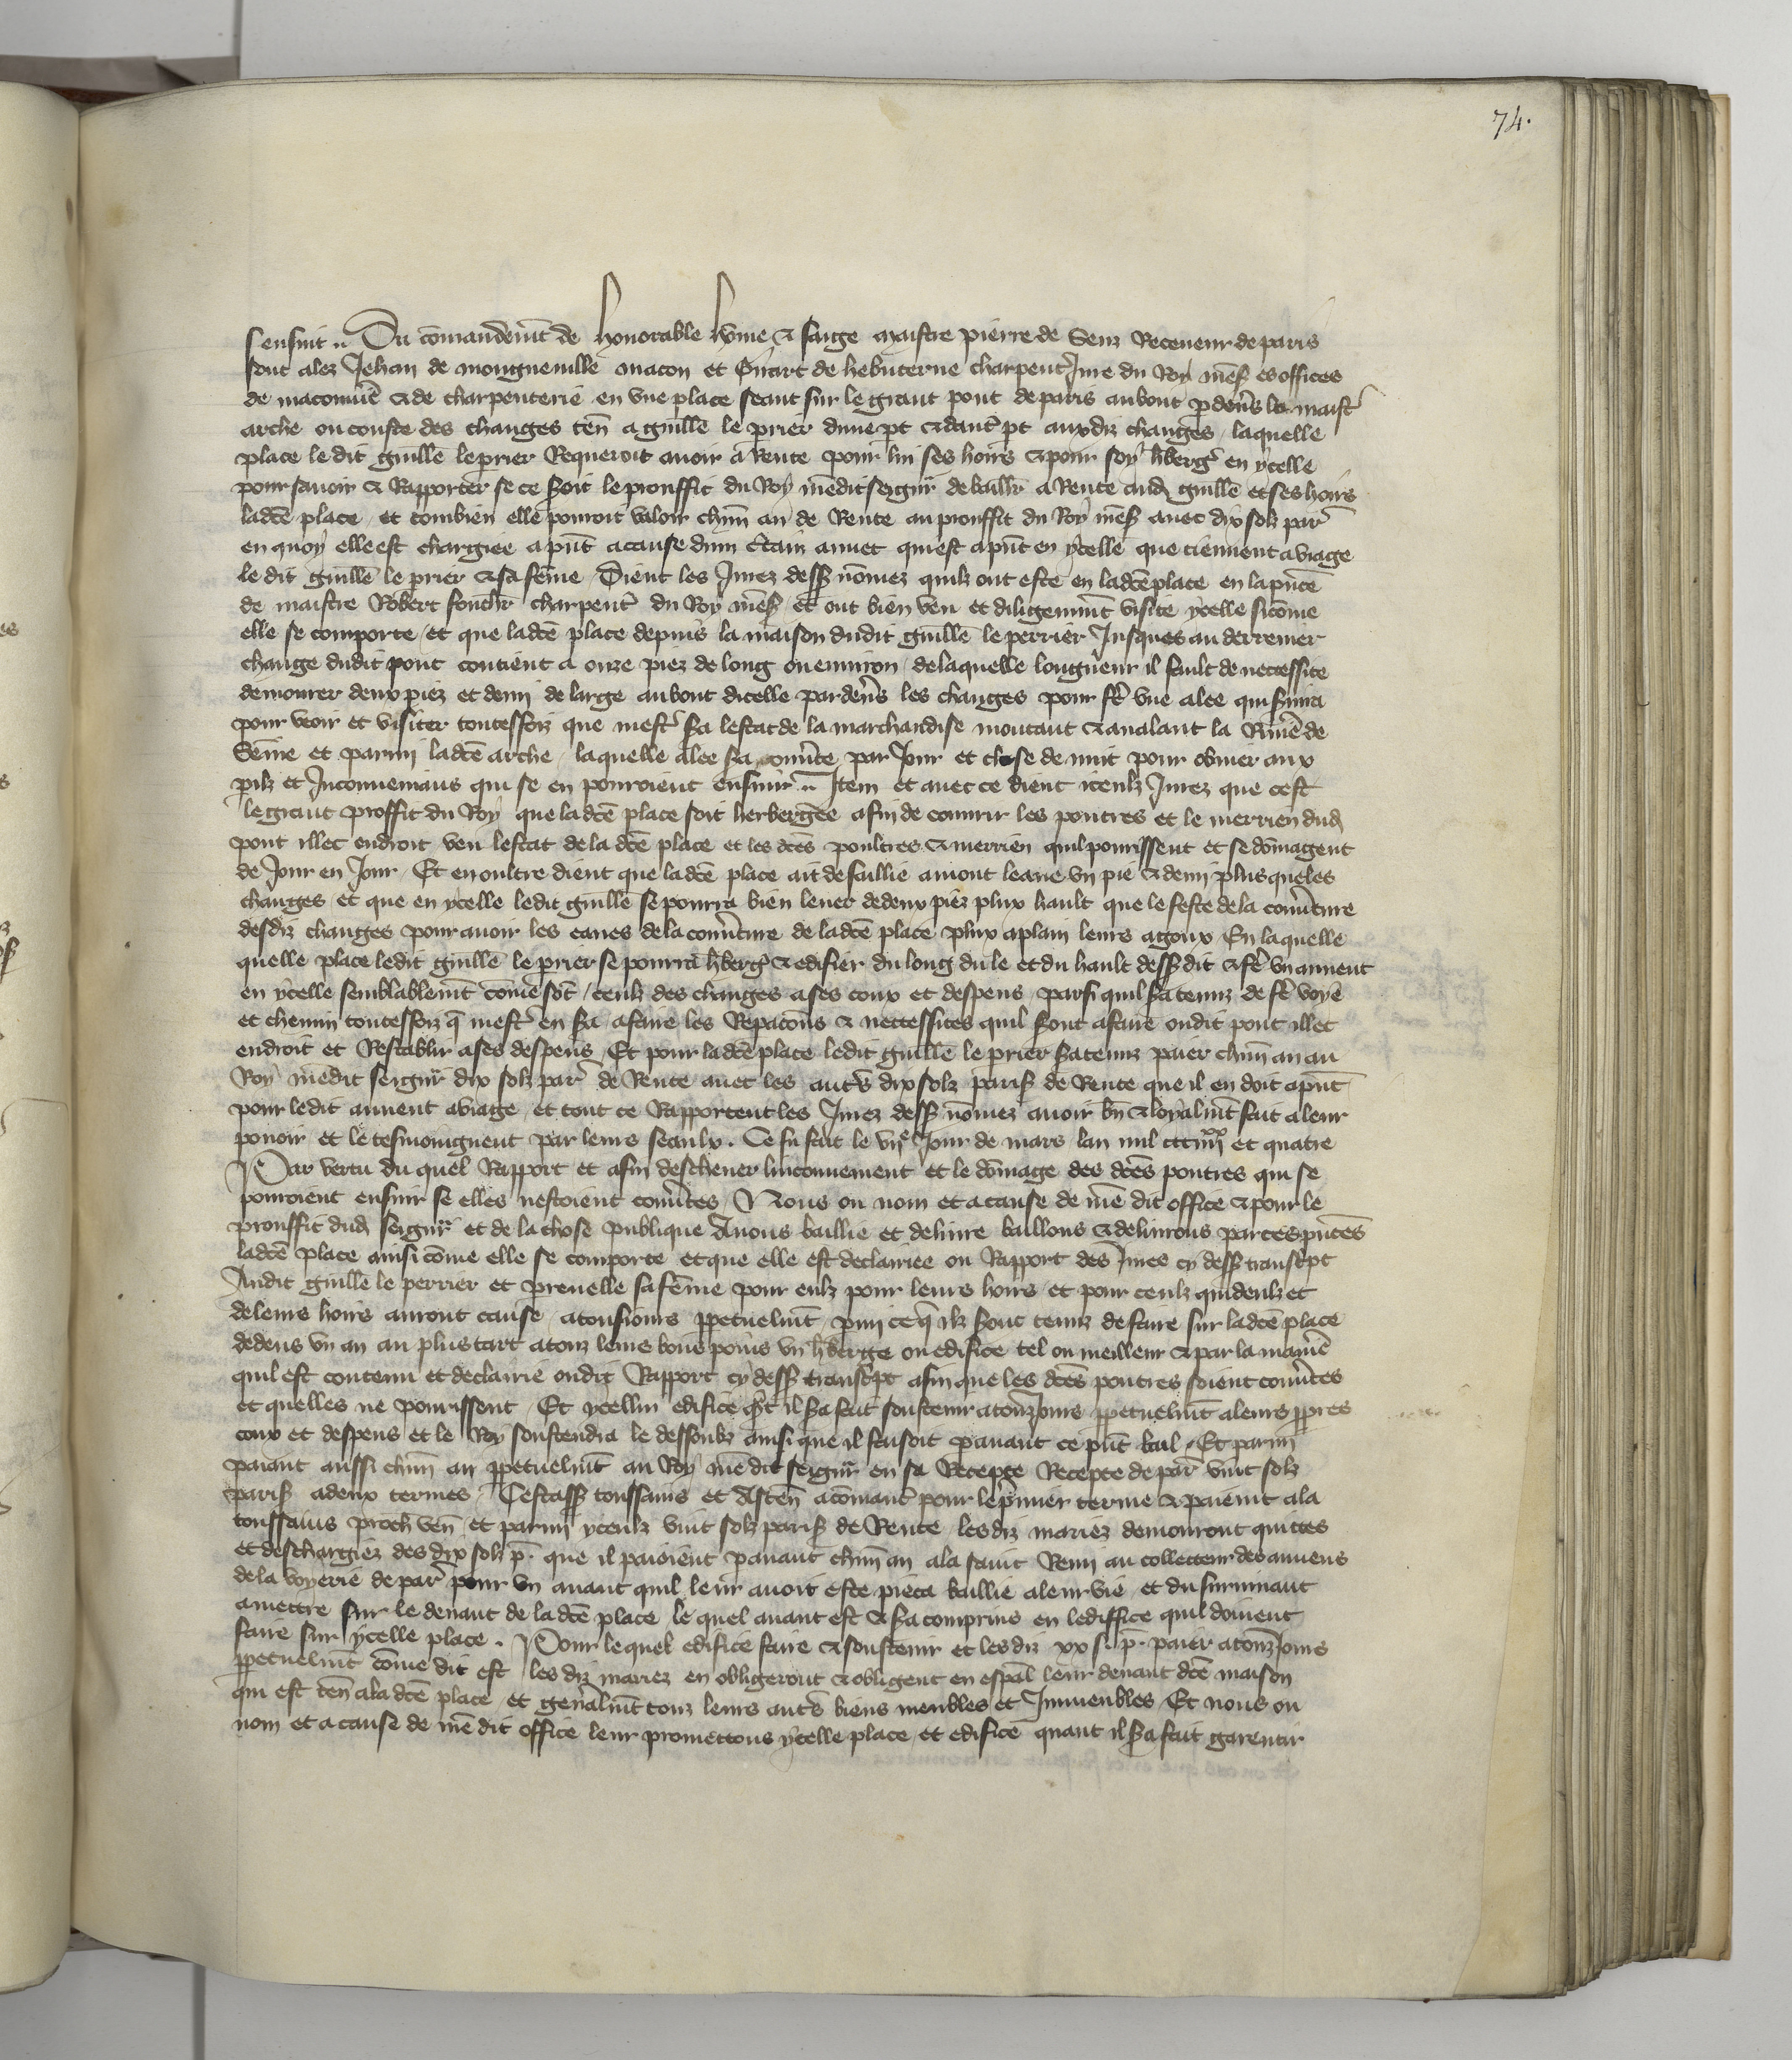 74.
sensuit .. Du cōmandemt de honorable hōme & saige maistre pierre de Senz Receveur de paris
sont alez Jehan de mongueuille macon et Guart de hebuterne charpentr Jure du Roy mess es offices
de maconnie & de charpenterie en vne place seant sur le grant pont de paris au bout p deus la maistr
arche ou couste des changes ten a guille le prier dune pt & dautr pt aux diz changes, laquelle
place le dit guille le prier Requeroit auoir a Rente pour lui ses hoirs & pour soy hberger en ycelle
pour sauoir & Rapporter se ce soit le prouffit du Roy medit seigur de baillr a Rente aud guille et ses hoirs
ladce place et combien elle pouroit valoir chun an de Rente au prouffit du Roy mess auec dix solz par
en quoy elle est chargiee a pnt a cause dun ctain auuet qui est a pnt en ycelle que tiennent a viage
le dit guille le prier & sa feme. Dient les Jurez dess nomez quilz ont este en ladce place en la pnce
de maistre Robert fouchr charpentr du Roy mess, et ont bien veu et diligemmt visite ycelle si come
elle se comporte, et que ladce place depuis la maison dudit guille le perrier Jusques au derrenier
change dudit pont contient a onze piez de long ou enuiron, de laquelle longueur il fault de neccessite
demourer deux piez et demi de large au bout dicelle par deus les changes pour fe vne alee qui suira
pour veoir et visiter toutesfoiz que mestr sa lestat de la marchandise montant & aualant la Riuie de
Seine et parmi ladce arche, laquelle alee sa couute par Jour et close de nuit pour obuier aux
pilz et Jnconueniaus qui se en pouroient ensuir .. Jtem et auec ce dient iceulx Jurez que cest
le grant proffit du Roy que ladce place soit herbergee afin de couurir les poutres et le merrien dud
pont illec endroit veu lestat de la dce place et les dces poultres & merrien quil pourrissent et se domagent
de Jour en Jour, Et en oultre dient que ladce place ait de saillie amont leaue vn pie & demi plus que les
changes, et que en ycelle ledit guille se pourra bien leuer de deux piez plux hault que le feste de la couuture
desdiz changes pour auoir les eaues de la couuture de ladce place plux a plain leurs agoux. En laquelle
quelle place ledit guille le prier se pourra hberger & edifier du long du le et du hault dess dit & fe vn auuent
en ycelle semblablemt come sot, ceulx des changes a ses coux et despens, parsi quil sa tenuz de fe voye
et chemin toutesfoiz q mestr en sa a faire les Repacons & neccessites quil sont a faire oudit pont illec
endroit et Restablir a ses despens, Et pour ladce place ledit guille le prier sa tenuz paier chun an au
Roy medit seigur dix solz par de Rente auec les autrs dix solz paris de Rente que il en doit a pnt
pour ledit auuent a viage, et tout ce Rapportent les Jurez dess nomez auoir bn & loyalmt fait a leur
pouoir et le tesmoingnent par leurs seaulx. Ce fu fait le vije Jour de mars lan mil ccc iiijxx et quatre
Par vertu du quel Rapport et afin descheuer linconuenient et le domage des dces poutres qui se
pouroient ensuir se elles nestoient couutes, Nous ou nom et a cause de me dit office & pour le
prouffit dud seigur et de la chose publique Auons baillie et deliure baillons & deliurons par ces pntes
ladce place ainsi come elle se comporte et que elle est declairiee ou Rapport des Jures cy dess transcpt
Audit guille le perrier et preuelle sa feme pour eulz pour leurs hoirs, et pour ceulz qui deulz et
de leurs hoirs auront cause, a tousiours ppetuelmt pmi ce q ilz sont tenuz de faire sur ladce place
dedens vn an au plus tart a touz leurs bons poins vn hberge ou edifice tel ou meilleur & par la manie
quil est contenu et declairie oudit Rapport cy dess transcpt afin que les dces poutres soient couutes
et quelles ne pourissent, Et ycellui edifice qt il sa fait soustenir a touz Jours ppetuelmt a leurs ppres
coux et despens et le Roy soustendra le dessoubz ainsi que il faisoit pauant ce pnt bail, Et parmi
paiant aussi chun an ppetuelmt au Roy me dit seigur en sa Recepte Recepte de par vint solz
paris a deux termes, Cestass toussains et Asten a comancr pour le pmier terme & paiemt a la
toussains proch ven, et parmi yceulz vint solz paris de Rente, les diz mariez demouront quittes
et deschargiez des dix solz p. que il paioient pauant chun an a la saint Remi au collecteur des auuens
de la voyerie de par pour vn auant quil leur auoit este pieca baillie a leur vie et du suruiuant
a mettre sur le deuant de la dce place, le quel auant est & sa comprins en lediffice quil doiuent
faire sur ycelle place. Pour lequel edifice faire & soustenir et les diz xx s. p. paier a touz Jours
ppetuelmt come dit est les diz mariez en obligerent & obligent en espal leur deuant dce maison
qui est ten a la dce place et generalmt touz leurs autrs biens meubles et Jmmeubles, Et nous ou
nom et a cause de me dit office leur promettons ycelle place, et edifice quant il sa fait garentir